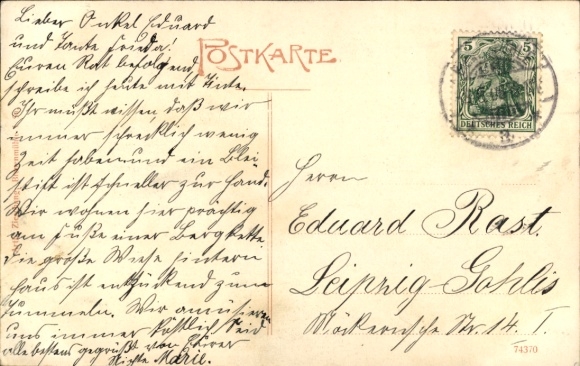 Lieber Onkel Eduard
und Tante Frieda!
Euren Rat befolgend
schreibe ich heute mit Tinte.
Ihr müßt wissen daß wir
immer schrecklich wenig
Zeit haben und ein Blei-
stift ist schneller zur Hand.
Wir wohnen hier prächtig
am Fuße einer Bergkette.
Die große Wiese hinterm
Haus ist entzückend zum
Tummeln. Wir amüsieren
uns immer köstlich Seid
alle bestens gegrüßt von Eurer
Nichte Marie.
POSTKARTE.
5 5
DEUTSCHES REICH
Herrn
Eduard Rast.
Leipzig-Gohlis
Möckernsche Str. 14. I.
74370